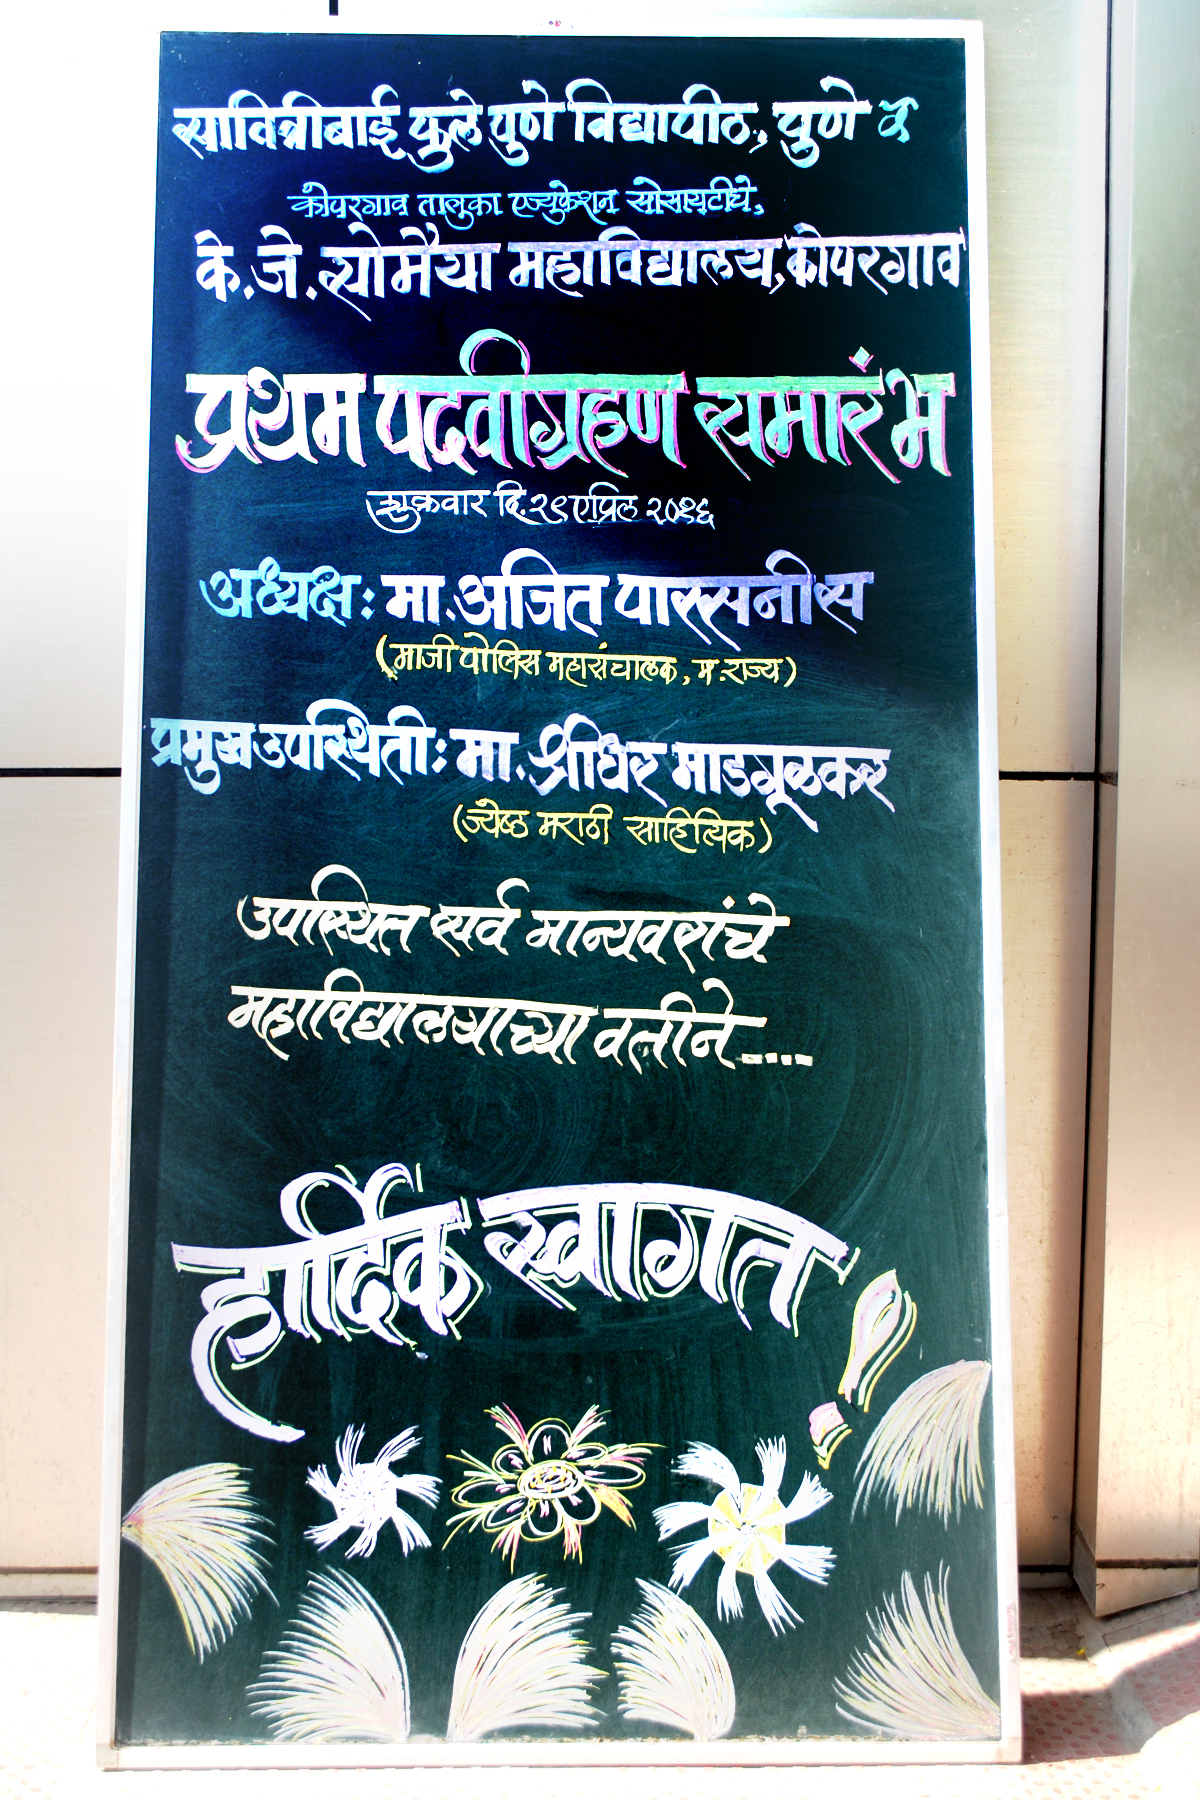 सावित्रीबाई फुले पुणे विद्यापीठ, पुणे व
कोपरगाव तालुका एज्युकेशन सोसायटीचे,
के.जे.सोमैया महाविद्यालय,कोपरगाव
प्रथम पदवीग्रहण समारंभ
शुक्रवार दि.२९ एप्रिल २०१६
अध्यक्ष: मा.अजित पारसनीस
(माजी पोलिस महासंचालक, म.राज्य)
प्रमुख उपस्थिती: मा.श्रीधर माडगूळकर
(ज्येष्ठ मराठी साहित्यिक)
उपस्थित सर्व मान्यवरांचे
महाविद्यालयाच्या वतीने....
हार्दिक स्वागत !